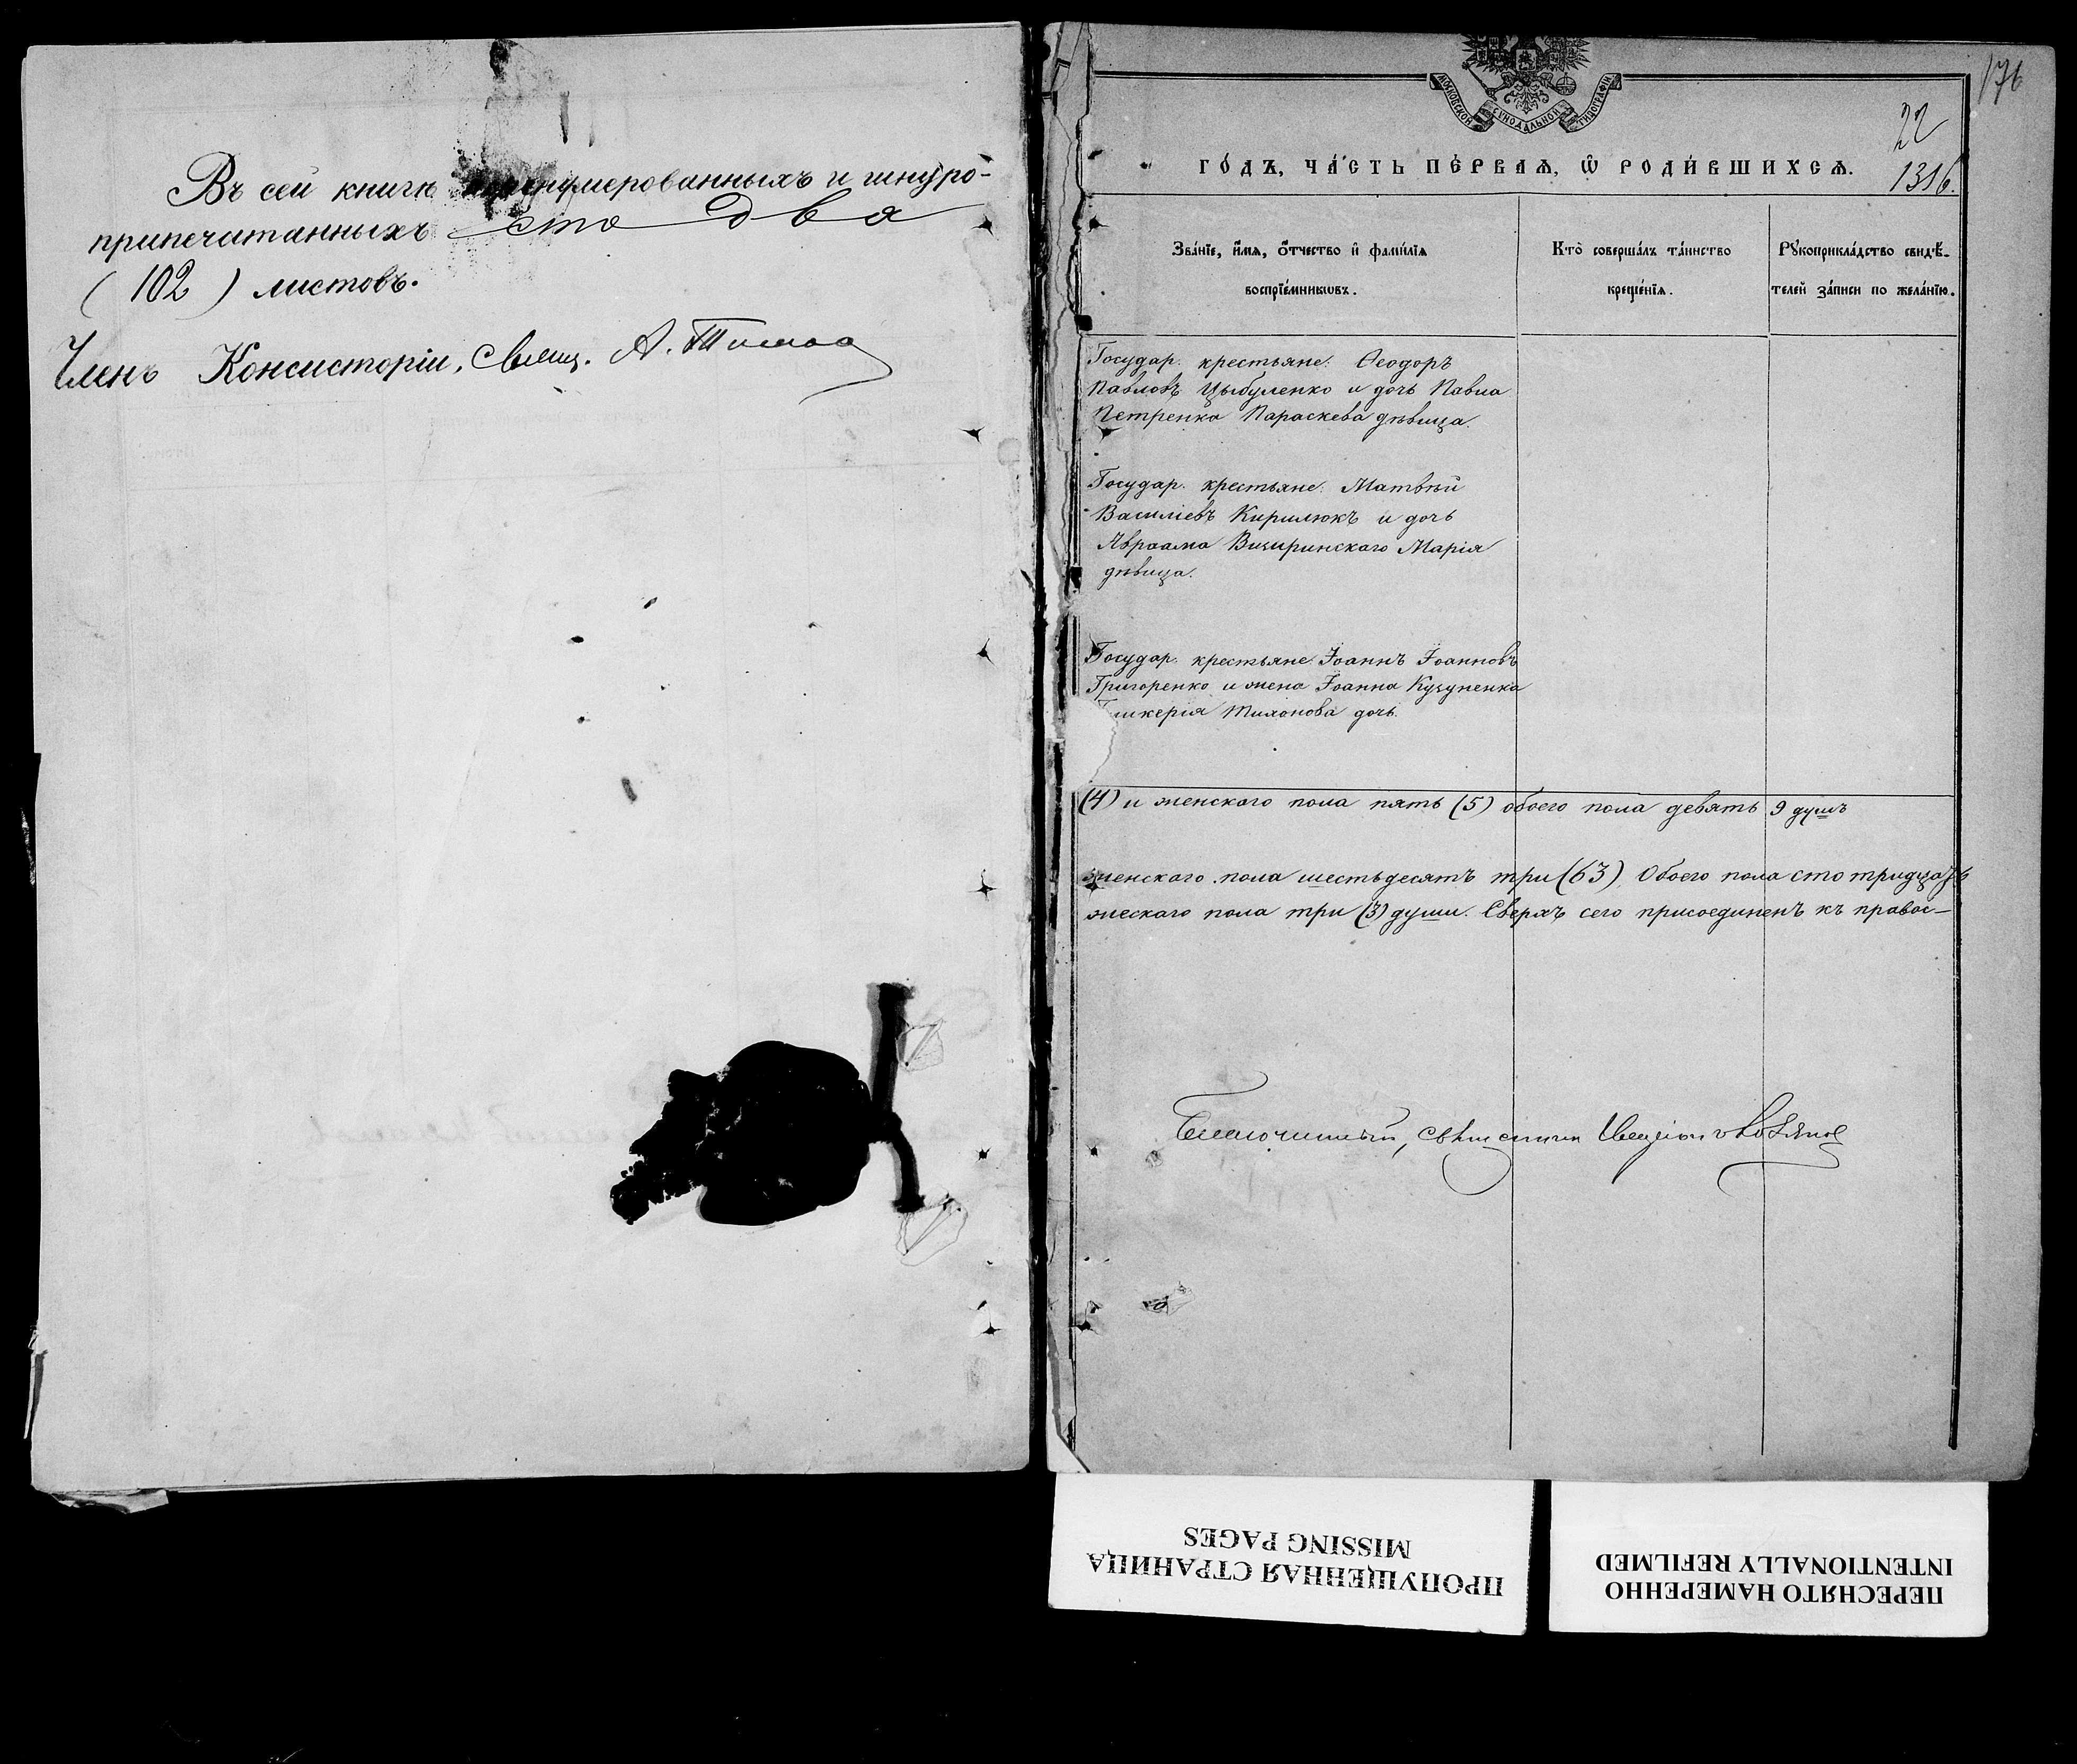 Въ сей книгѣ пронумерованныхъ и шнуро-
припечатанныхъ сто два
(102) листовъ.
Членъ Консисторіи, Свящ. А.
176
МОСКОВСКОЙ СѴНОДАЛЬНОЙ ТИПОГРАФІИ
22
ГО́ДЪ, ЧА́СТЬ ПЕ́РВАѦ, Ѽ РОДИ́ВШИХСѦ.
1316.
Зва́нїе, и҆́мѧ, ѻ҆́тчество и҆ фамѝлїѧ
воспрїе́мникѡвъ.
Кто̀ соверша́лъ та́инство
креще́нїѧ.
Рꙋкоприкла́дство свидѣ́-
телей за́писи по жела́нїю.
Государ. крестьяне: Ѳеодоръ
Павловъ Цыбуленко и дочь Павла
Петренка Параскева дѣвица.
Государ. крестьяне: Матвѣй
Василіевъ Кирилюкъ и дочь
Авраама Вишринскаго Марія
дѣвица.
Государ. крестьяне: Іоаннъ Іоанновъ
Григоренко и жена Іоанна
Тихонова дочь.
(4) и женскаго пола пять (5) обоего пола девять 9 душъ
женскаго пола шестьдесятъ три (63) Обоего пола сто тридцать
жескаго пола три (3) души. Сверхъ сего присоединенъ къ правос-
Благочинный, священникъ
ПРОПУЩЕННАЯ СТРАНИЦА
MISSING PAGES
ПЕРЕСНЯТО НАМЕРЕННО
INTENTIONALLY REFILMED